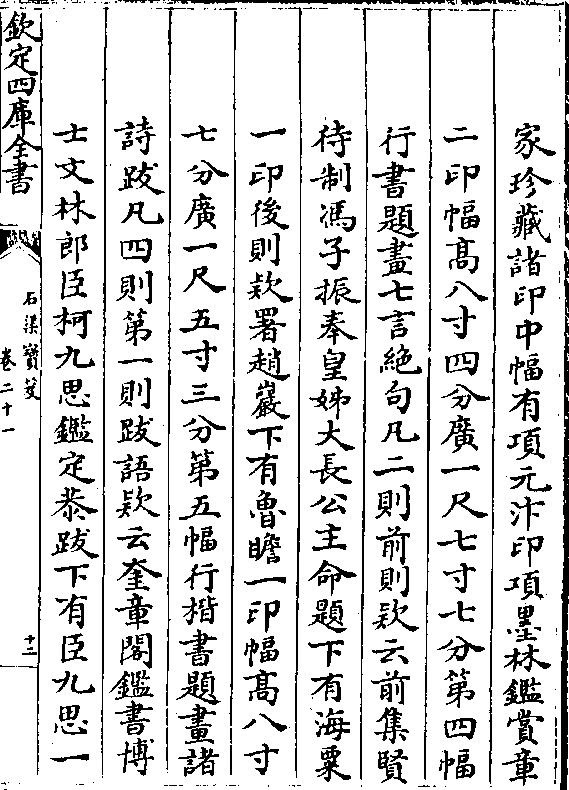 家珍藏諸印中幅有項元汴印項墨林鑑賞章
二印幅髙八寸四分廣一尺七寸七分第四幅
行書題畫七言絶句凡二則前則欵云前集賢
待制馮子振奉皇姊大長公主命題下有海粟
一印後則欵署趙巖下有魯瞻一印幅髙八寸
七分廣一尺五寸三分第五幅行楷書題畫諸
詩跋凡四則第一則跋語欵云奎章閣鑑書博
士文林郎臣柯九思鑑定恭跋下有臣九思一
欽定四庫全書
石渠寶笈
卷二十一
十二